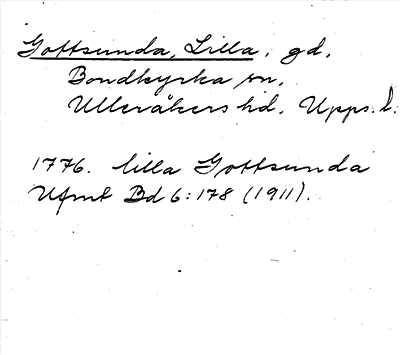 Gottsunda, Lilla, gd,
Bondkyrka sn,
Ulleråkers hd, Upps. l.
1776. lilla Gottsunda
Ufmt Bd 6:178 (1911).